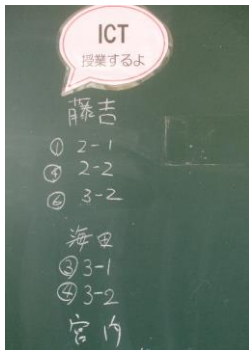 ICT
授業するよ
藤吉
① 2-1
④ 2-2
⑥ 3-2
海田
③ 3-1
④ 3-2
宮内